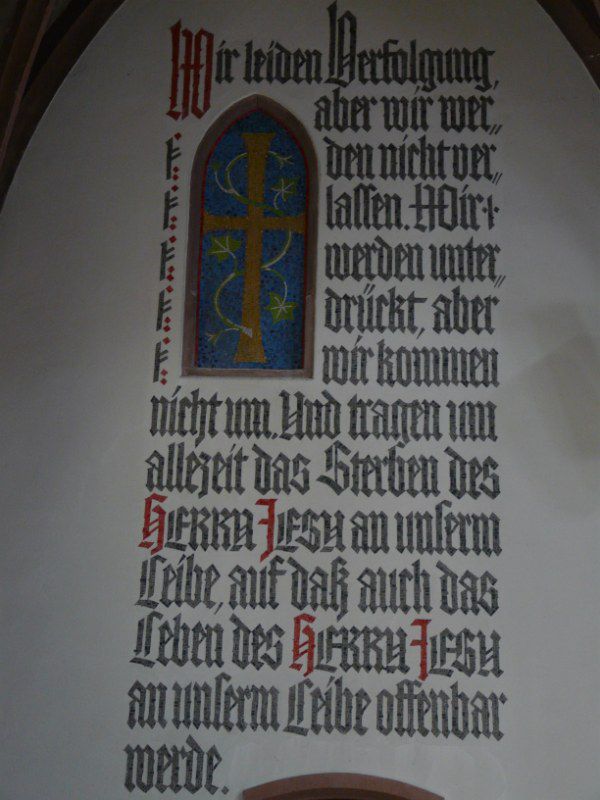 Wir leiden Verfolgung,
aber wir wer„
den nicht ver„
lassen. Wir
werden unter„
drückt, aber
wir kommen
nicht um. Und tragen um
allezeit das Sterben des
HERRN JESU an unserm
Leibe, auf daß auch das
Leben des HERRN JESU
an unserm Leibe offenbar
werde.